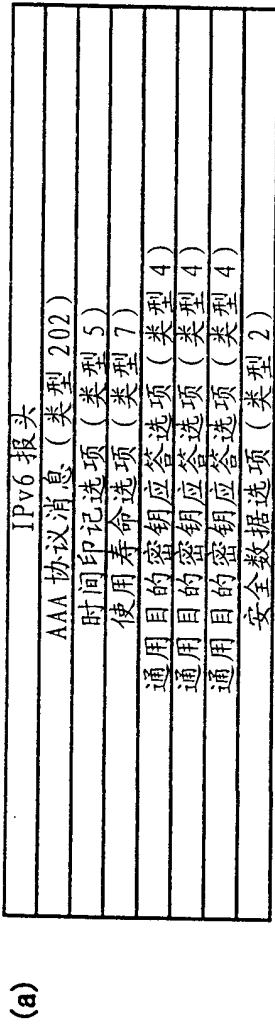 (a)
IPv6 报头
AAA 协议消息 (类型 202)
时间印记选项 (类型 5)
使用寿命选项 (类型 7)
通用目的密钥应答选项 (类型 4)
通用目的密钥应答选项 (类型 4)
通用目的密钥应答选项 (类型 4)
安全数据选项 (类型 2)